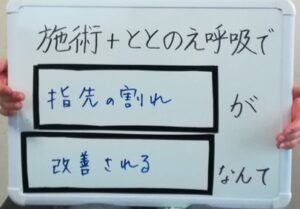 施術+ととのえ呼吸で
指先の割れ が
改善される なんて